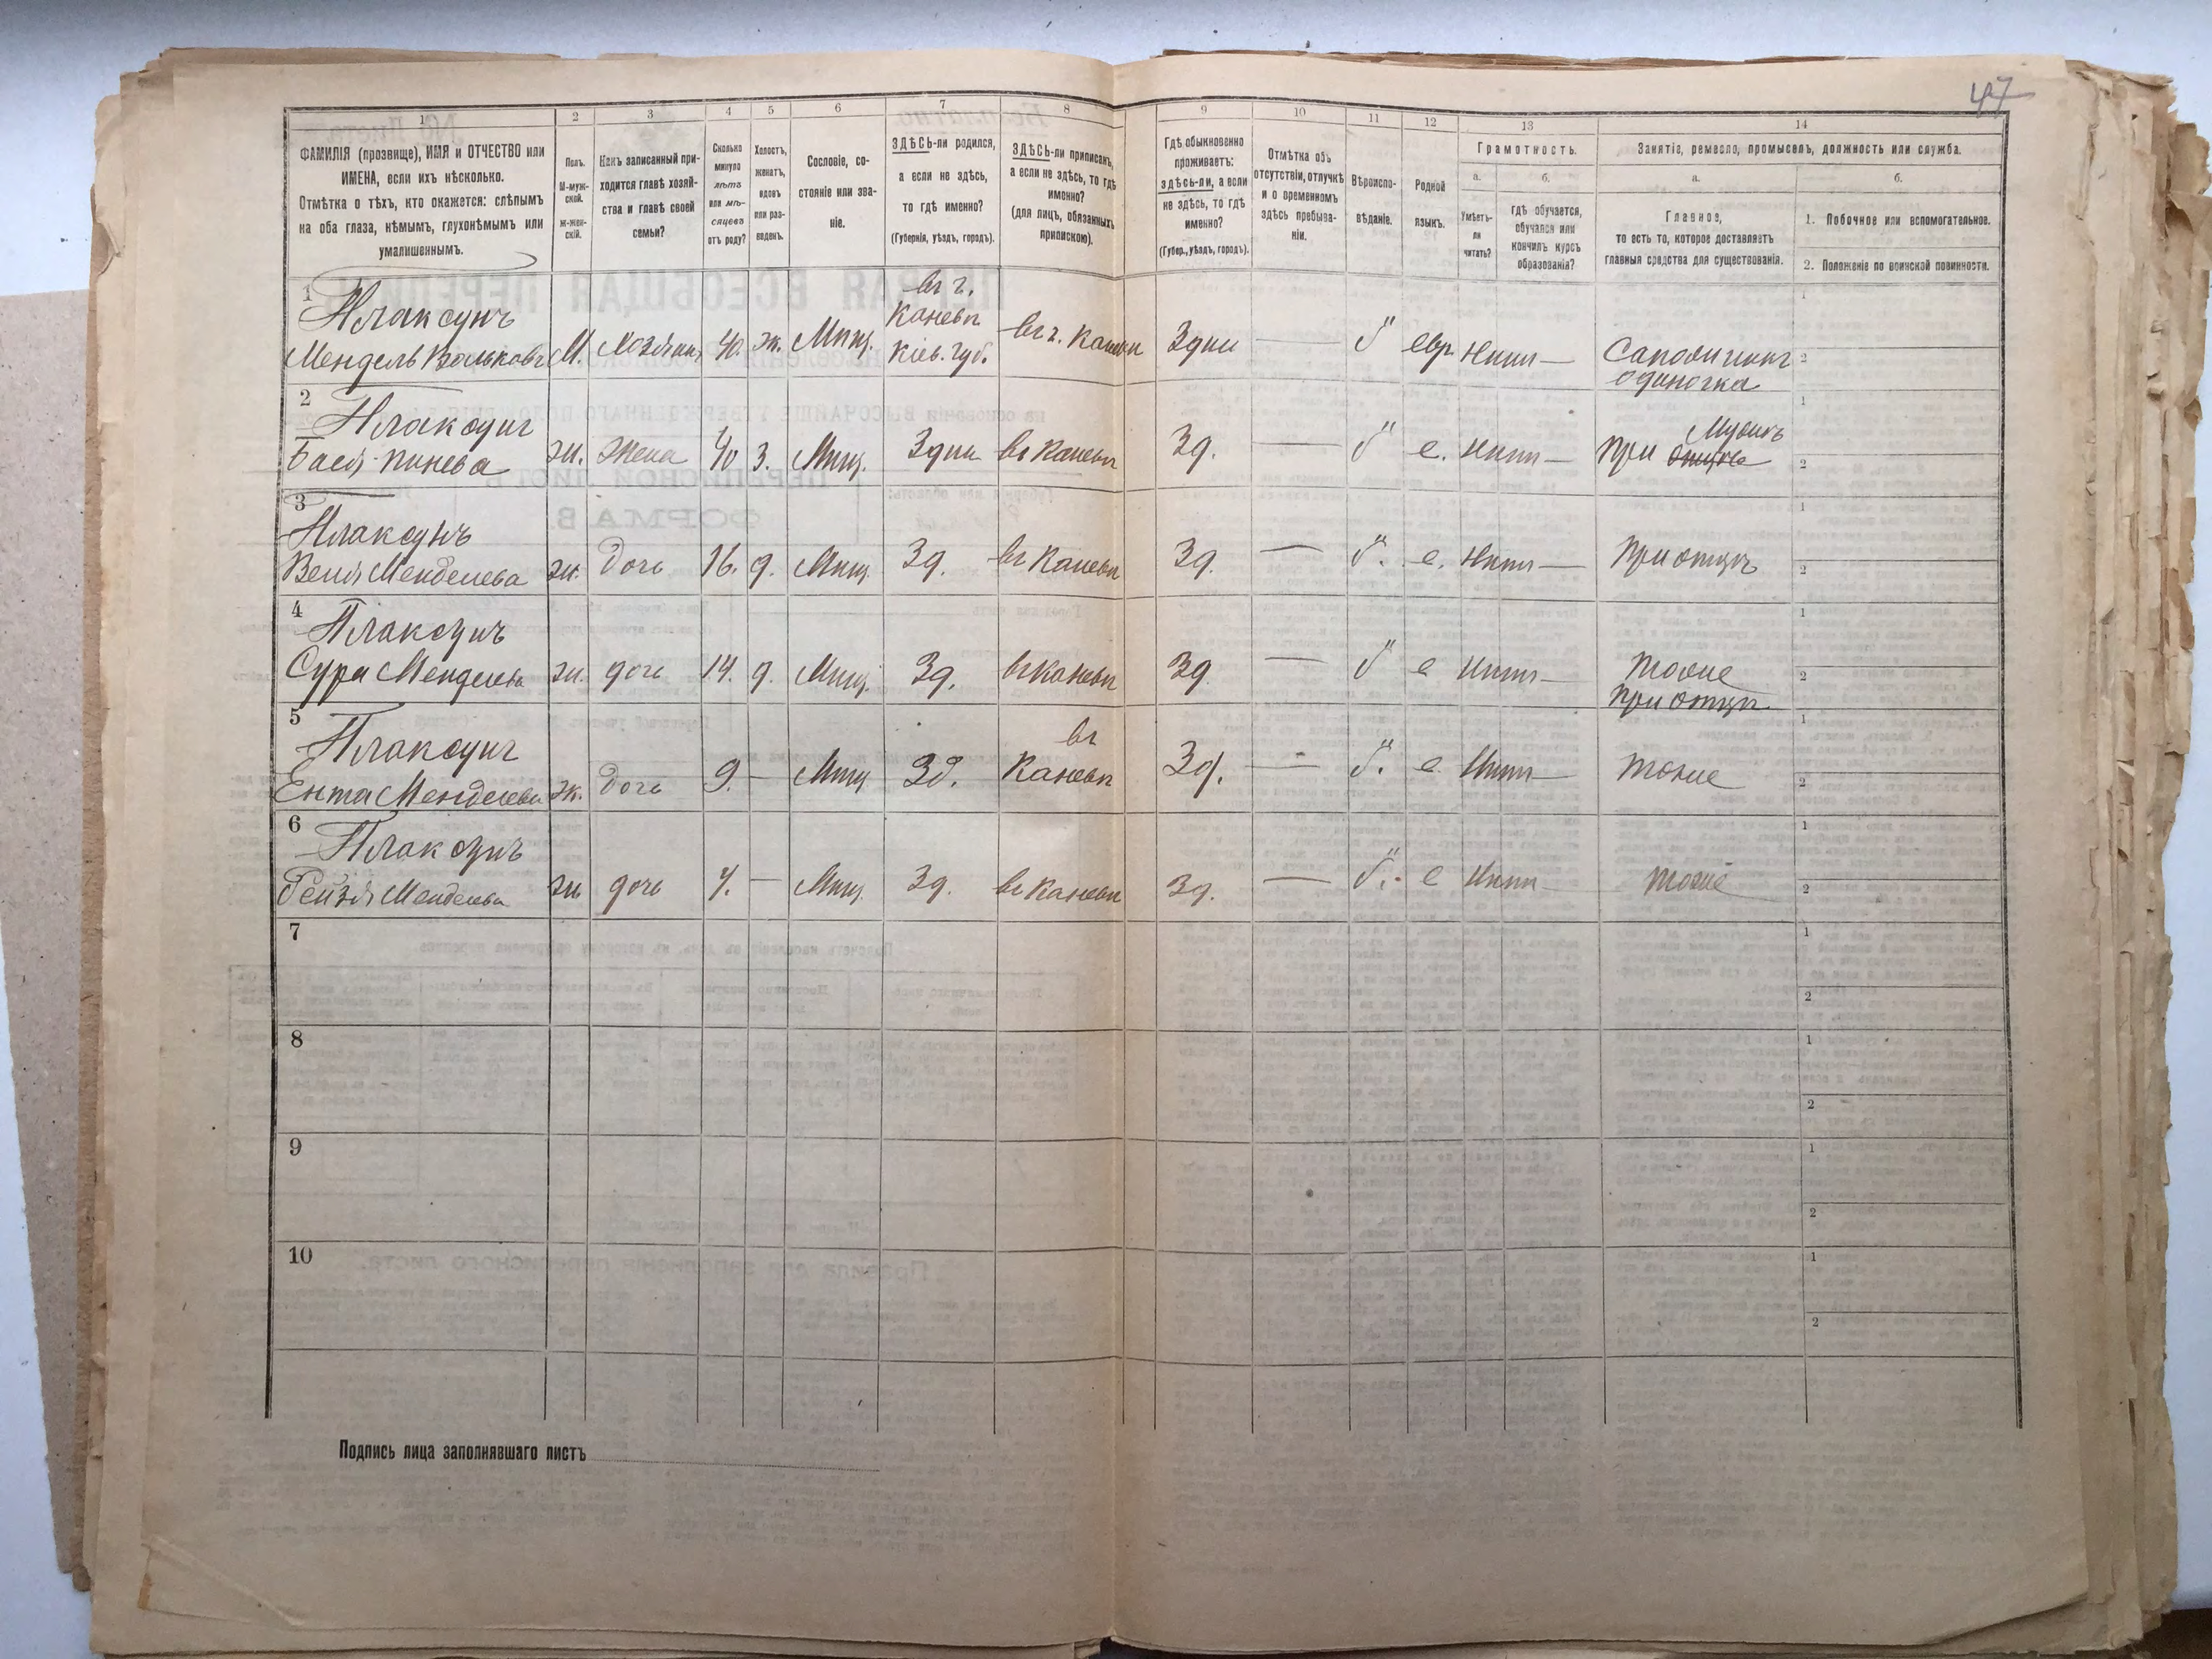 47
1 2 3 4 5 6 7 8 9 10 11 12 13 14
ФАМИЛІЯ (прозвище), ИМЯ и ОТЧЕСТВО или
ИМЕНА, если ихъ нѣсколько.
Отмѣтка о тѣхъ, кто окажется: слѣпымъ
на оба глаза, нѣмымъ, глухонѣмымъ или
умалишеннымъ.
Полъ.
М-муж-
ской.
Ж-жен-
скій.
Какъ записанный при-
ходится главѣ хозяй-
ства и главѣ своей
семьи?
Сколько
минуло
лѣтъ
или мѣ-
сяцевъ
отъ роду?
Холостъ,
женатъ,
вдовъ
или раз-
веденъ.
Сословіе, со-
стояніе или зва-
ніе.
ЗДѢСЬ-ли родился,
а если не здѣсь,
то гдѣ именно?
(Губернія, уѣздъ, городъ).
ЗДѢСЬ-ли приписанъ,
а если не здѣсь, то гдѣ
именно?
(для лицъ, обязанныхъ
припискою).
Гдѣ обыкновенно
проживаетъ:
здѣсь-ли, а если
не здѣсь, то гдѣ
именно?
(Губер., уѣздъ, городъ).
Отмѣтка объ
отсутствіи, отлучкѣ
и о временномъ
здѣсь пребыва-
ніи.
Вѣроиспо-
вѣданіе.
Родной
языкъ.
Грамотность.
а.
Умѣетъ-
ли
читать?
б.
гдѣ обучается,
обучался или
кончилъ курсъ
образованія?
Занятіе, ремесло, промыселъ, должность или служба.
а.
Главное,
то есть то, которое доставляетъ
главныя средства для существованія.
б.
1. Побочное или вспомогательное.
2. Положеніе по воинской повинности.
1
Плаксунъ
Мендель Вольковъ М. Хозяинъ 40. ж. Мѣщ. въ г. Каневѣ Кіев. губ. въ г. Каневѣ Здѣсь — евр. Нѣтъ — Сапожникъ
одиночка
1
2
2
Плаксунъ
Бася Пинева ж. жена 40 з. Мѣщ. Здѣсь въ Каневѣ Зд. — е. Нѣтъ — При мужѣ
1
2
3
Плаксунъ
Менделева ж. дочь 16. д. Мѣщ. Зд. въ Каневѣ Зд. — е. Нѣтъ — При отцѣ
1
2
4
Плаксунъ
Сура Менделева ж. дочь 14. д. Мѣщ. Зд. въ Каневѣ Зд. — е Нѣтъ — Тоже
При отцѣ
1
2
5
Плаксунъ
Ента Менделева ж. дочь 9. — Мѣщ. Зд. въ Каневѣ Зд. — е Нѣтъ — Тоже
1
2
6
Плаксунъ
Рейзя Менделева ж дочь — Мѣщ. Зд. въ Каневѣ Зд. — е Нѣтъ — Тоже
1
2
7
1
2
8
1
2
9
1
2
10
1
2
Подпись лица заполнявшаго листъ